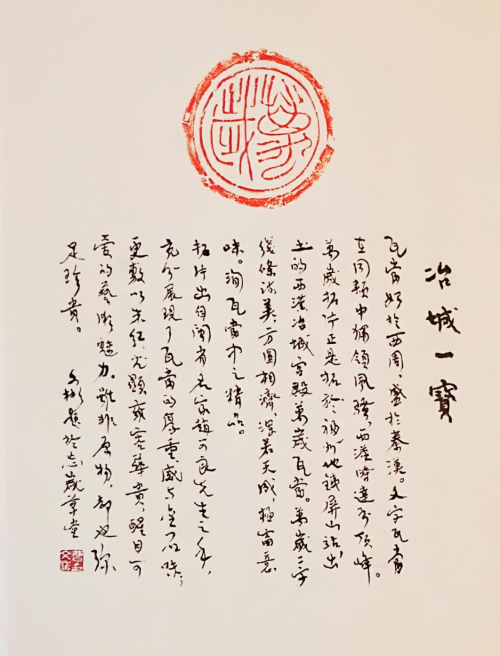 萬歲
冶城一寶
瓦當始於西周,盛於秦漢。文字瓦當
在同類中獨領風騷,西漢時達至頂峰。
萬歲拓片正是拓於福州地鐵屏山站出
土的西漢冶城宮殿萬歲瓦當。萬歲二字
綫條流美,方圓相濟,渾若天成,極富意
味。洵瓦當中之精品。
拓片出自閩省名家可風先生之手,
充分展現了瓦當的厚重感与金石味,
更敷以朱紅,尤顯雍容華貴,醒目可
愛的藝術魅力。雖非原物,却也弥
足珍貴。
文彬題於忘歲草堂